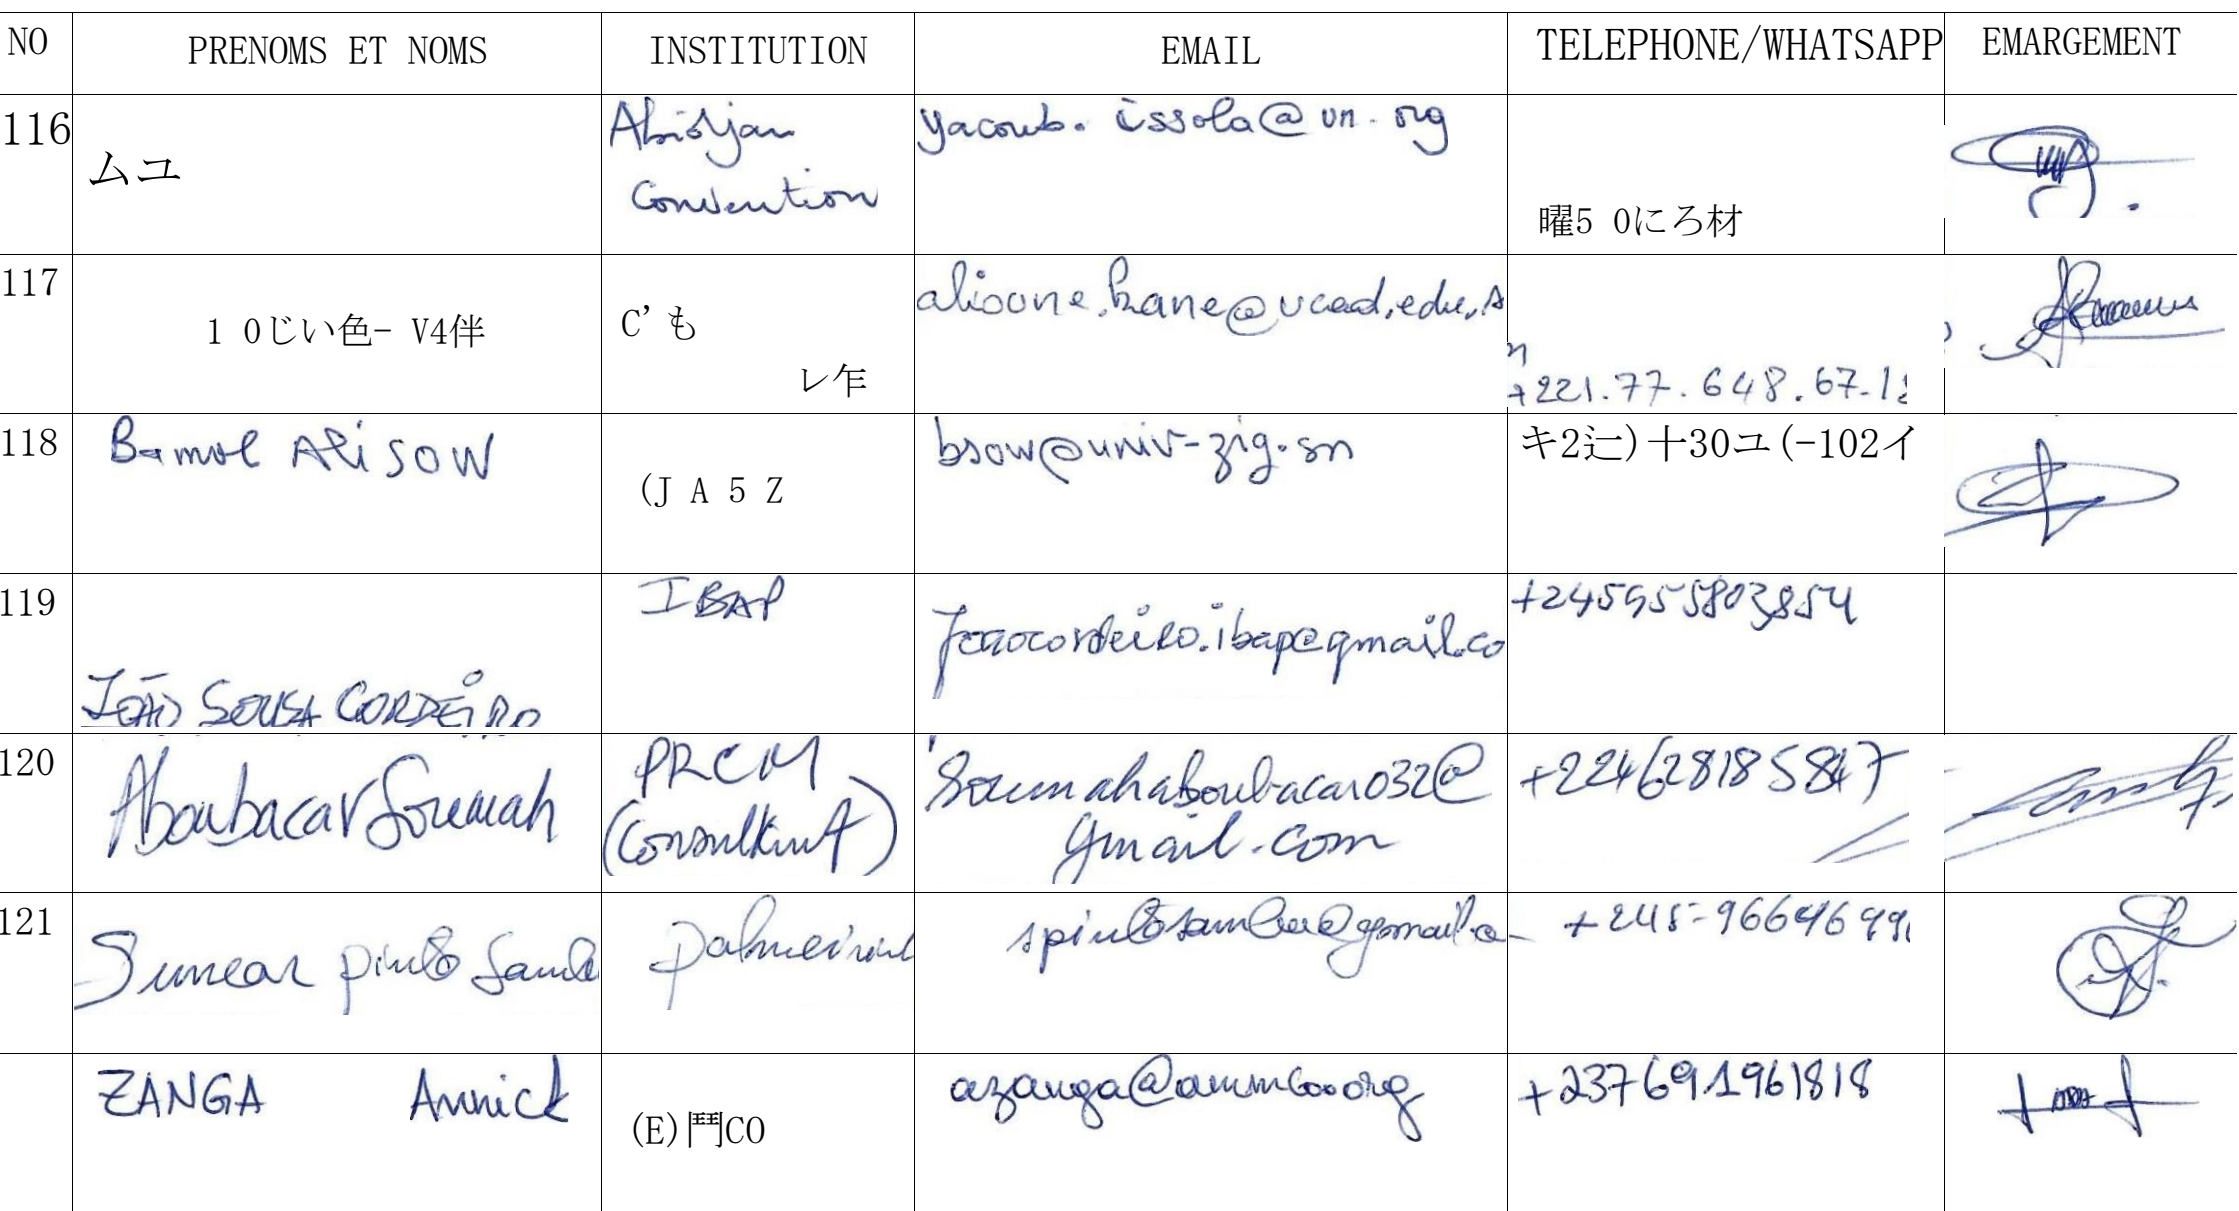 NO PRENOMS ET NOMS INSTITUTION EMAIL TELEPHONE/WHATSAPP EMARGEMENT
116 ムユ Abidjan Convention yacoub.issola@un.org 曜5 0にろ材
117 1 0じい色- V4伴 C'も レ乍 alioune.kane@ucad.edu.sn +221.77.648.67.12
118 Bamol Ali SOW (J A 5 Z bsow@univ-zig.sn キ2辷)十30ユ(-102イ
119 JOÃO SOUSA CORDEIRO IBAP joaocordeiro.ibap@gmail.co +245955803854
120 Aboubacar Soumah PRCM (Consultant) Soumahaboubacar032@gmail.com +224628185847
121 Pinto Palmeirinha +245-966469
ZANGA Annick (E)鬥CO +237691961818